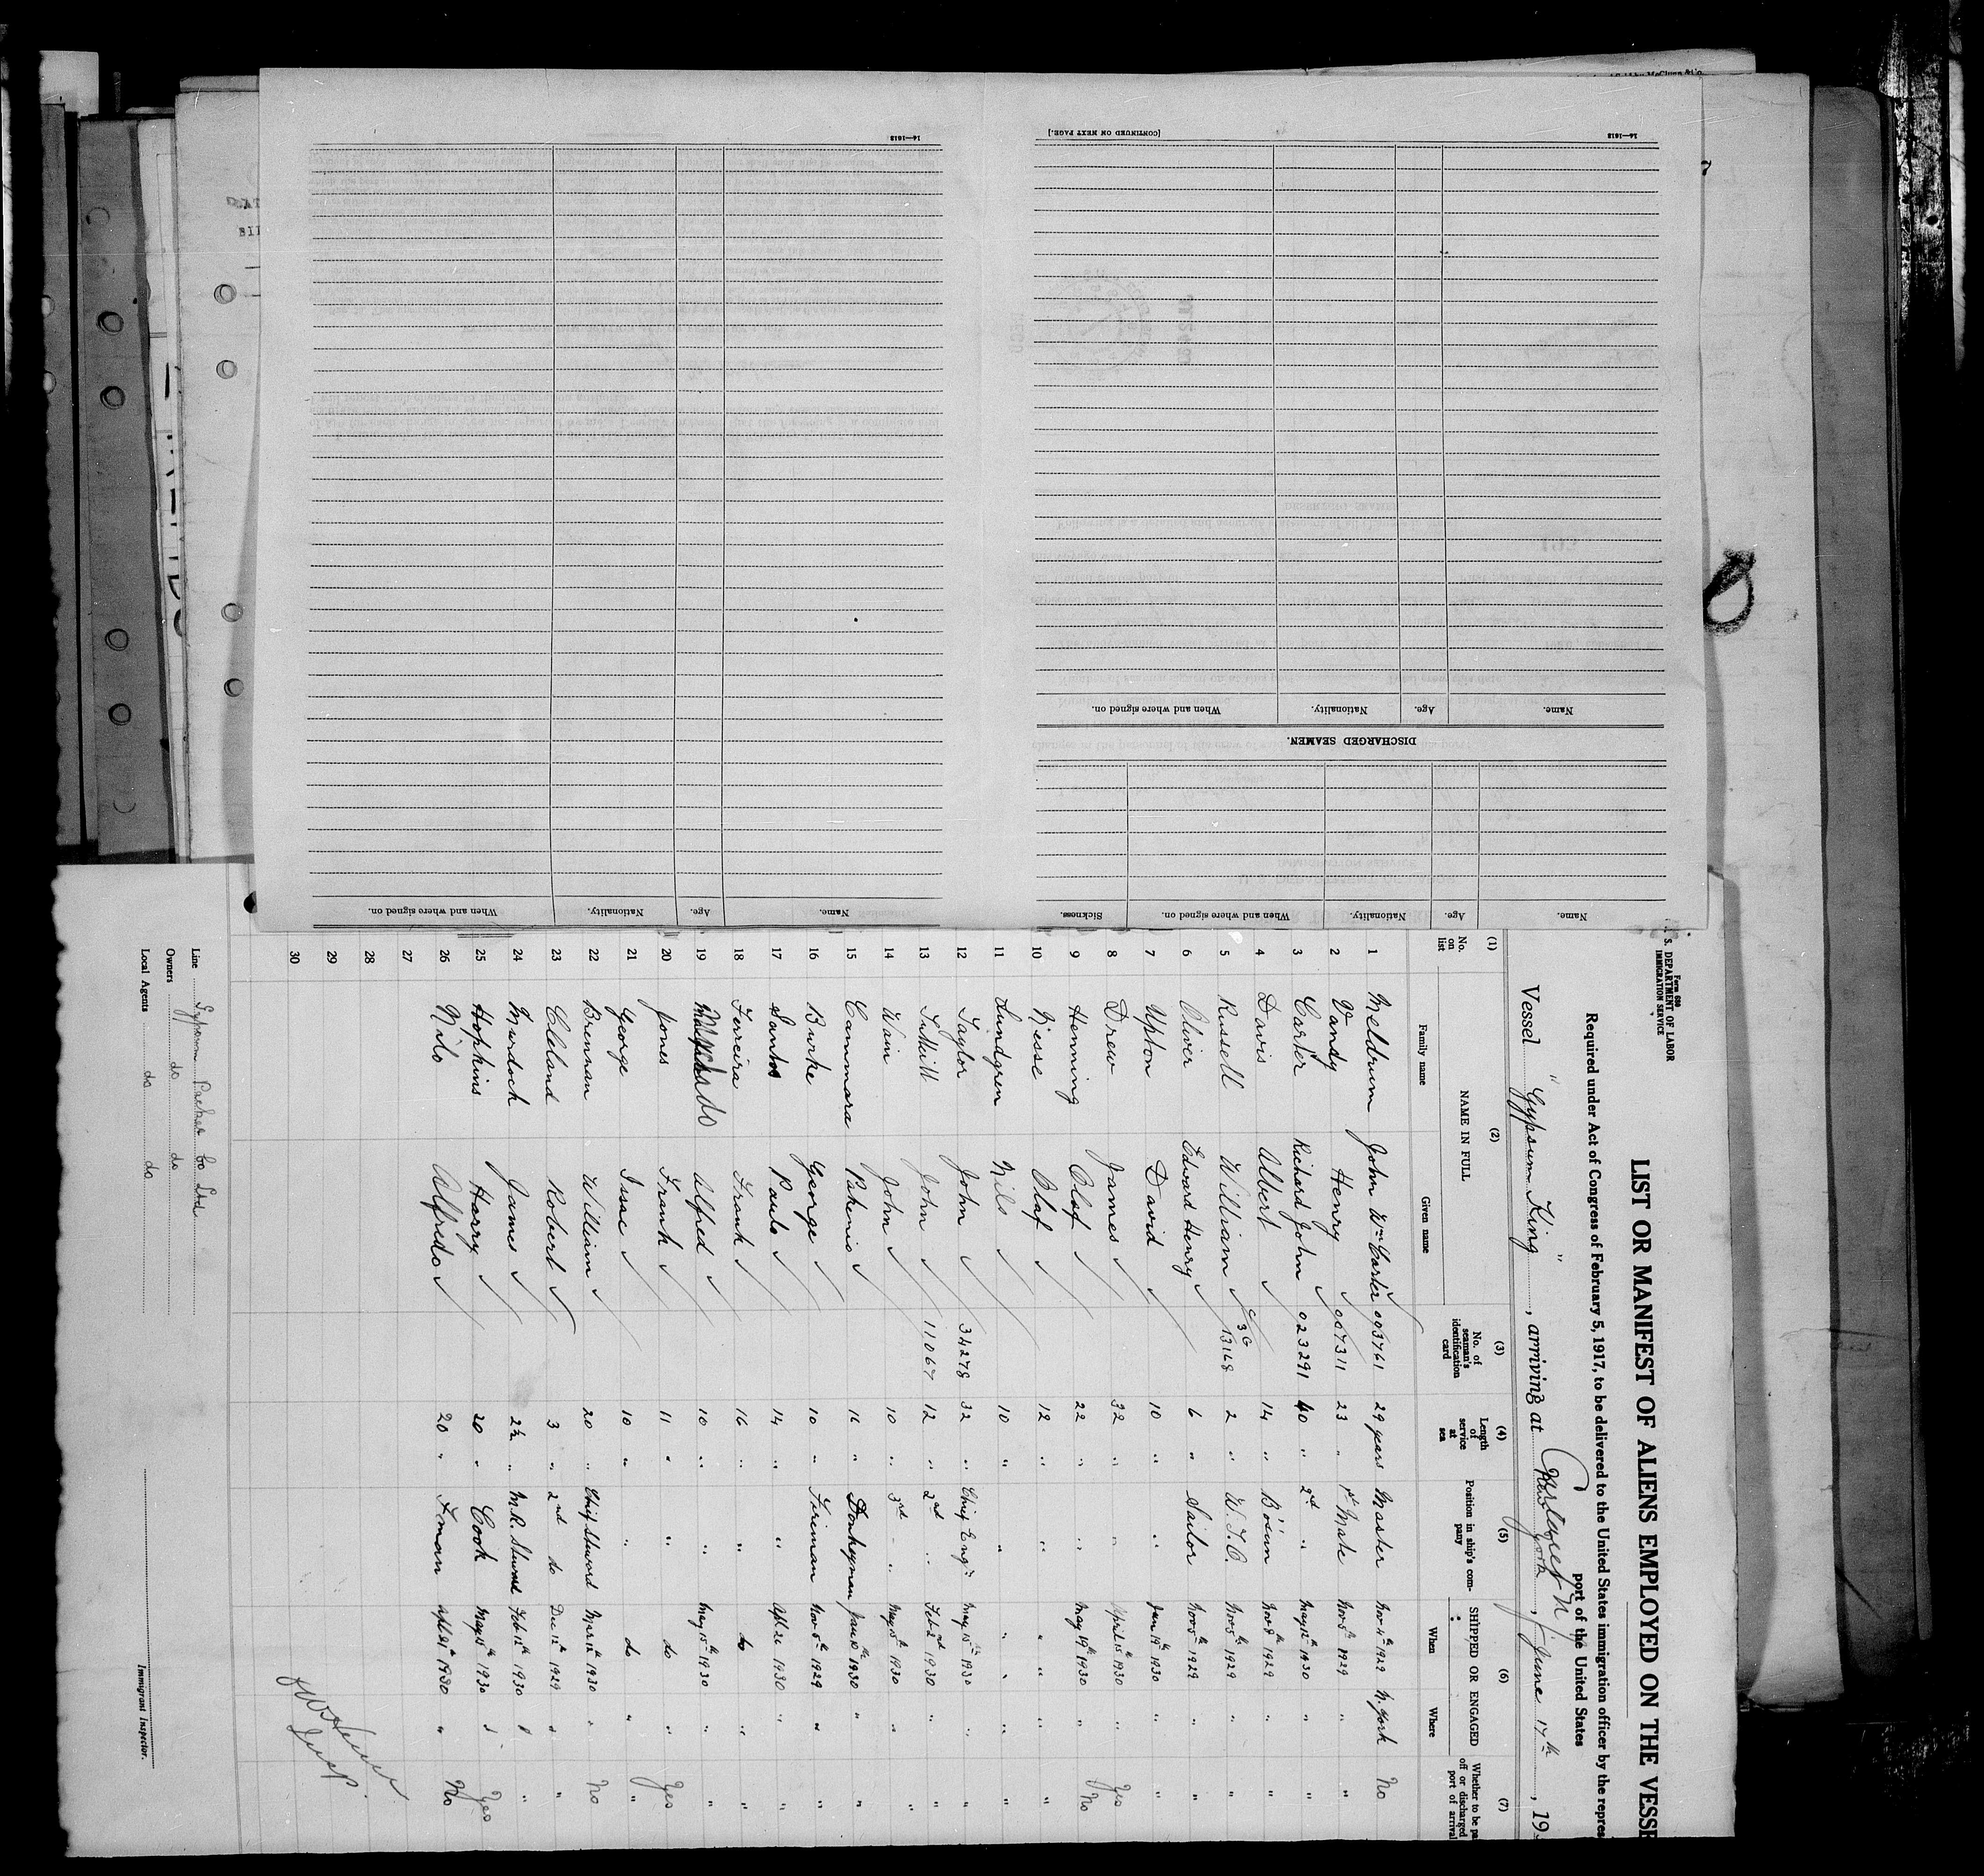 Form 680
U. S. DEPARTMENT OF LABOR
IMMIGRATION SERVICE
LIST OR MANIFEST OF ALIENS EMPLOYED ON THE VESSE
Required under Act of Congress of February 5, 1917, to be delivered to the United States immigration officer by the repres
port of the United States
Vessel "Gypsum King", arriving at , June 17th, 19
(1) (2) (3) (4) (5) (6) (7)
No. on list NAME IN FULL No. of seaman's identification card Length of service at sea Position in ship's company SHIPPED OR ENGAGED Whether to be pa off or discharged port of arrival
Family name Given name When Where
1 Meldrum John Wm Carter 003761 29 years Master Nov 4th 1929 N. York No
2 Vandy Henry 007311 23 " 1st Mate Nov 5th 1929 " "
3 Carter Richard John 023291 40 " 2nd " May 12th 1930 " "
4 Davis Albert 14 " Bosun Nov 8th 1929 " "
5 Russell William 13168 2 " W.T.O. Nov 5th 1929 " "
6 Oliver Edward Henry 6 " Sailor Nov 5th 1929 " "
7 Upton David 10 " " Jan 19th 1930 " "
8 Drew James 32 " " April 15th 1930 " Yes
9 Henning Olaf 22 " " May 19th 1930 " No
10 Nesse Olaf 12 " " " " "
11 Lundgren Nils 10 " " " " "
12 Taylor John 34278 32 " Chief Engr May 15th 1930 " "
13 John 11067 12 " 2nd " Feb 2nd 1930 " "
14 Wain John 10 " 3rd " May 15th 1930 " "
15 Cammara 16 " Donkeyman Jan 10th 1930 " "
16 Burke George 10 " Fireman Nov 5th 1929 " "
17 Santos Paulo 14 " " Apl 21 1930 " "
18 Ferreira Frank 16 " " do " "
19 Alfred 10 " " May 15th 1930 " "
20 Jones Frank 11 " " do " Yes
21 George Isac 10 " " do " "
22 Brennan William 20 " Chief Steward Mar 12th 1930 " No
23 Cleland Robert 3 " 2nd do Dec 12th 1929 " "
24 Murdoch James 2½ " M.R. Steward Feb 12th 1930 " "
25 Hopkins Harry 20 " Cook May 15th 1930 " Yes
26 Nilo Alfredo 20 " F.man Apl 21st 1930 " No
27
28
29
30
Line Gypsum Packet Co Ltd
Owners do do
Local Agents do do
Immigrant Inspector.
DISCHARGED SEAMEN.
Name. Age. Nationality. When and where signed on. Sickness.
Name. Age. Nationality. When and where signed on.
[CONTINUED ON NEXT PAGE.]
14—1618
Name. Age. Nationality. When and where signed on.
14—1618